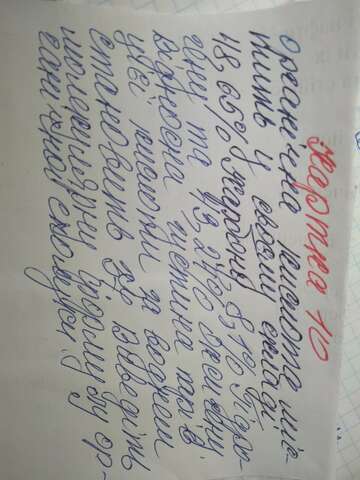 Картка 10
Органічна кислота міс-
тить у своєму складі
48,65% карбону, 8,1% Гідро-
гену та 43,2% оксигену
Відносна густина парів
цієї кислоти за воднем
становить 37. Виведіть
молекулярну формулу ор-
ганічної сполуки